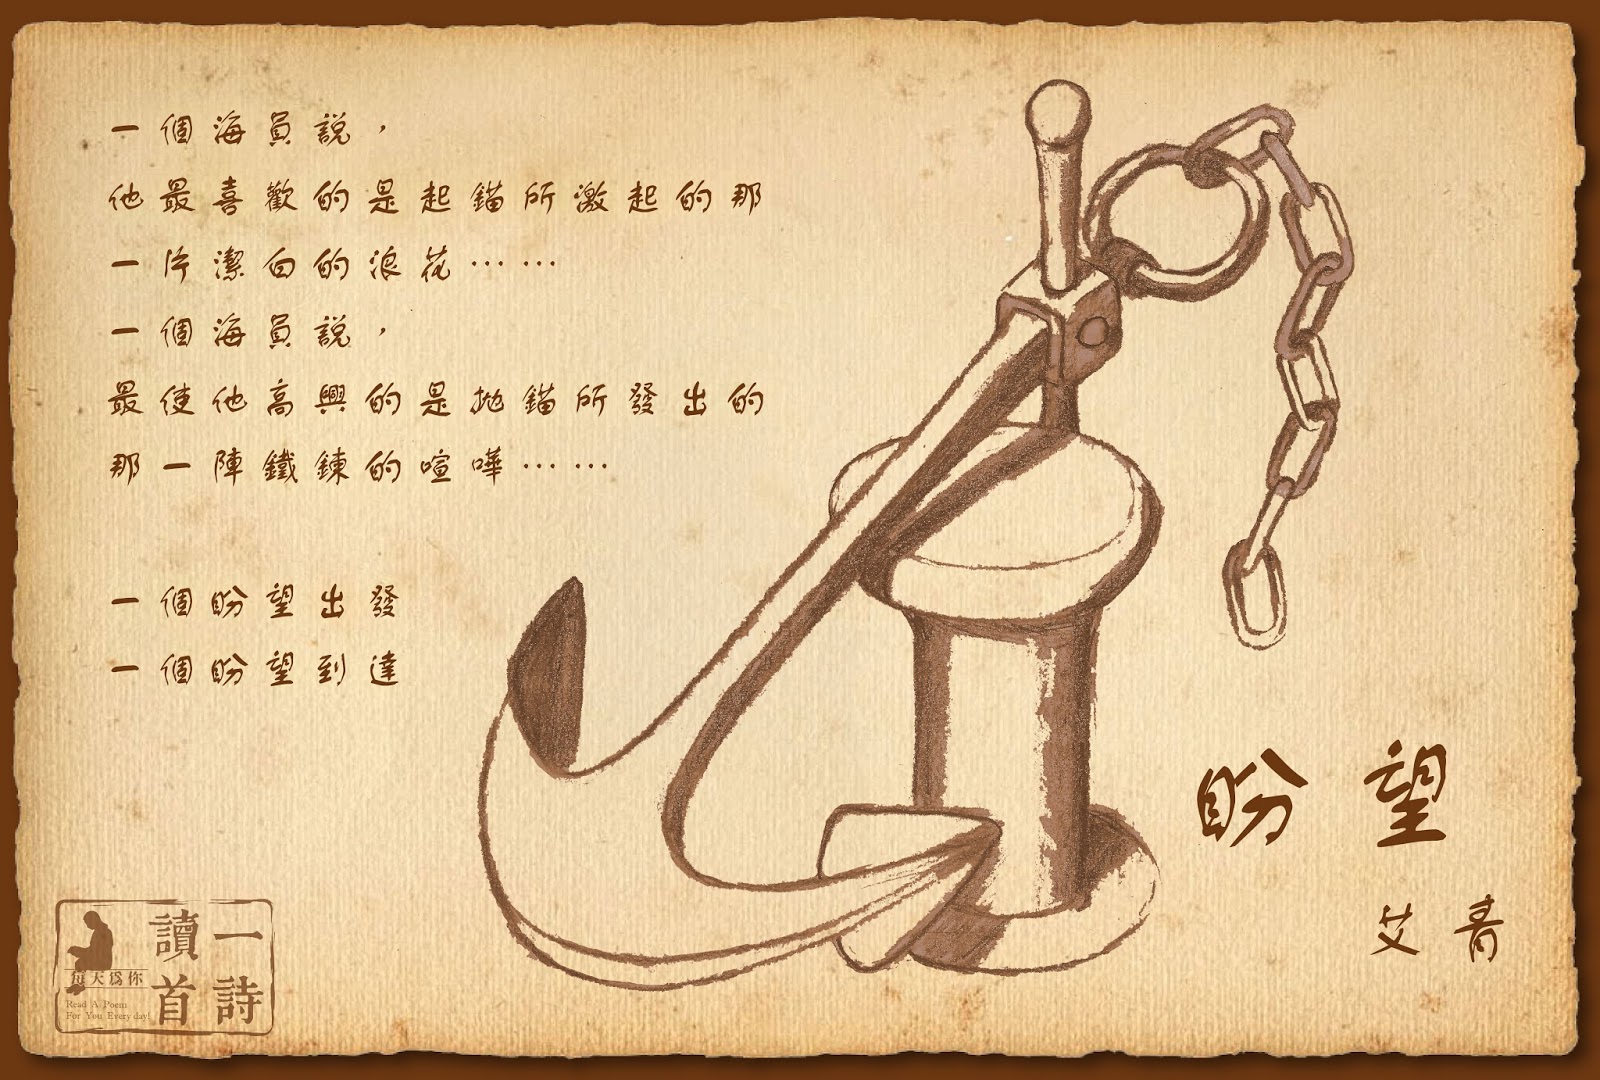 一個海員說，
他最喜歡的是起錨所激起的那
一片潔白的浪花……
一個海員說，
最使他高興的是拋錨所發出的
那一陣鐵鍊的喧嘩……
一個盼望出發
一個盼望到達
盼望
艾青
讀一
首詩
每天為你
Read A Poem
For You Every day!